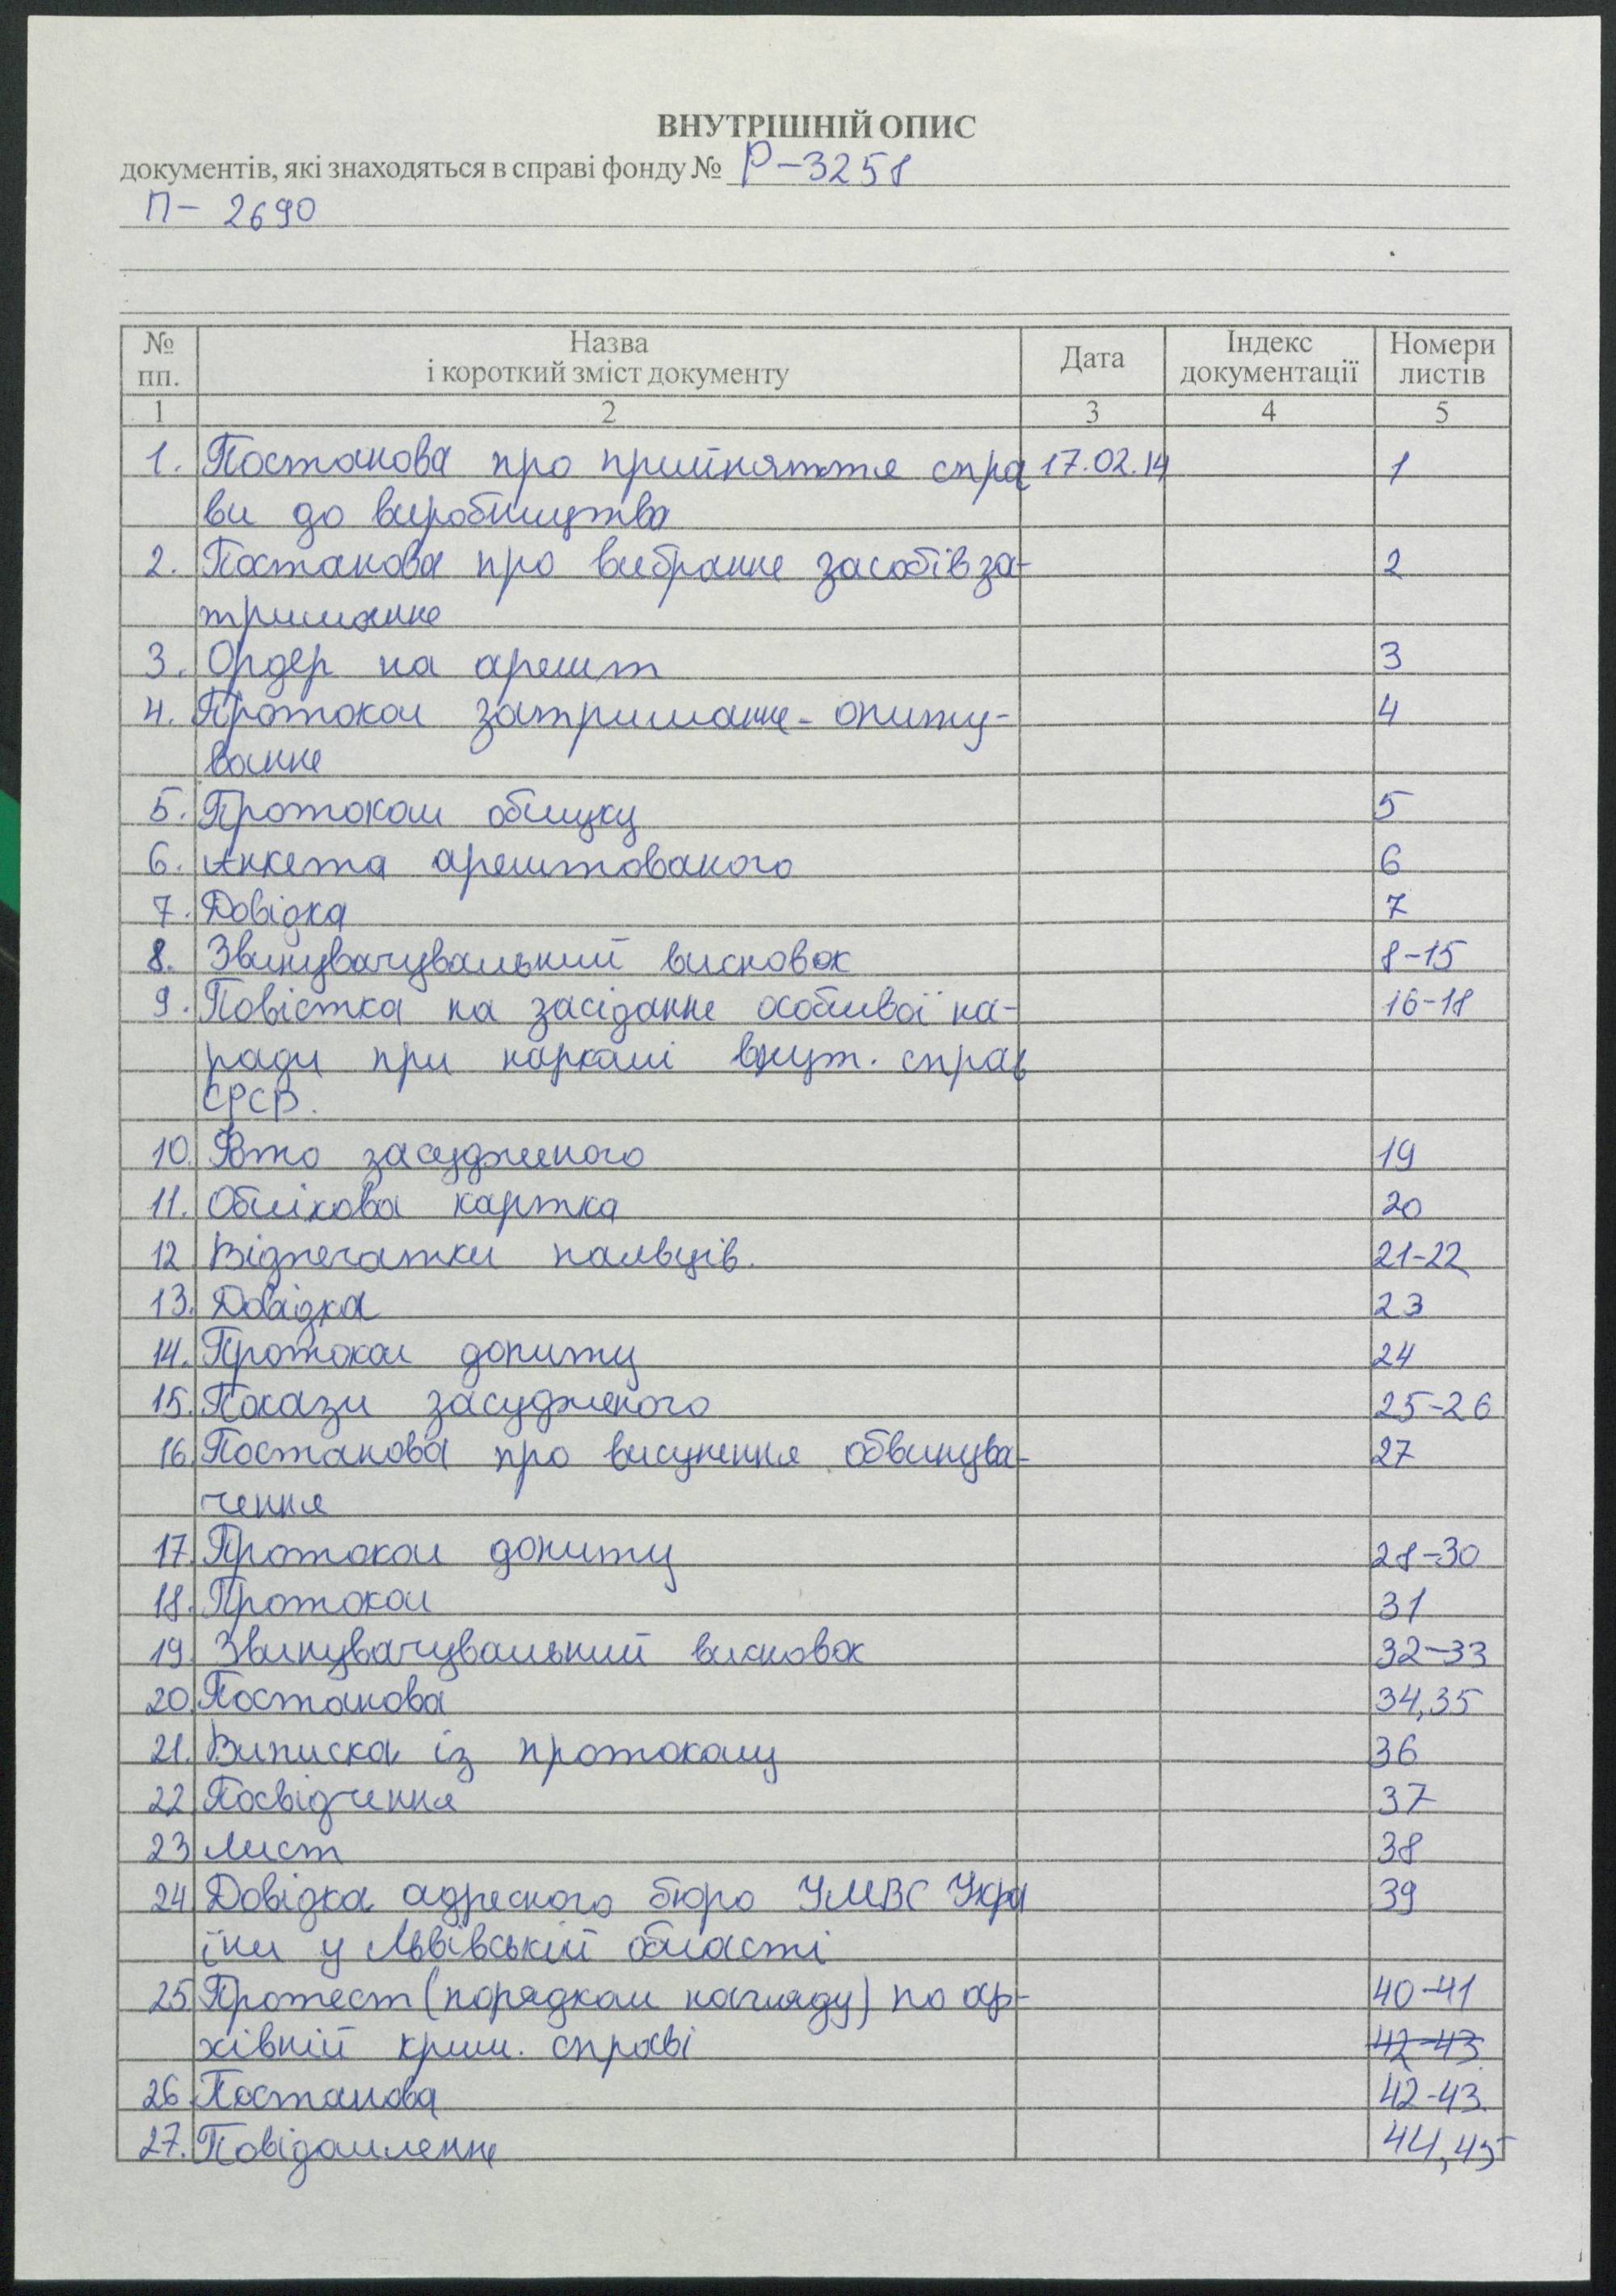 ВНУТРІШНІЙ ОПИС
документів, які знаходяться в справі фонду № Р-3258
П- 2690
№ пп. Назва і короткий зміст документу Дата Індекс документації Номери листів
1 2 3 4 5
1. Постанова про прийняття спра 17.02.14 1
ви до виробництва
2. Постанова про вибрання засобів за- 2
тримання
3. Ордер на арешт 3
4. Протокол затримання - опиту- 4
вання
5. Протокол обшуку 5
6. Анкета арештованого 6
7. Довідка 7
8. Звинувачувальний висновок 8-15
9. Повістка на засідання особливої на- 16-18
ради при наркомі внут. справ
СРСР.
10. Фото засудженого 19
11. Облікова картка 20
12 Відпечатки пальців. 21-22
13. Довідка 23
14. Протокол допиту 24
15. Покази засудженого 25-26
16. Постанова про висунення обвинува- 27
чення
17. Протокол допиту 28-30
18. Протокол 31
19. Звинувачувальний висновок 32-33
20. Постанова 34,35
21. Виписка із протоколу 36
22 Посвідчення 37
23 Лист 38
24 Довідка адресного бюро УМВС Укра 39
їни у Львівській області
25 Протест (порядком нагляду) по ар- 40-41
хівній крим. справі 42-43
26 Постанова 42-43.
27. Повідомлення 44,45